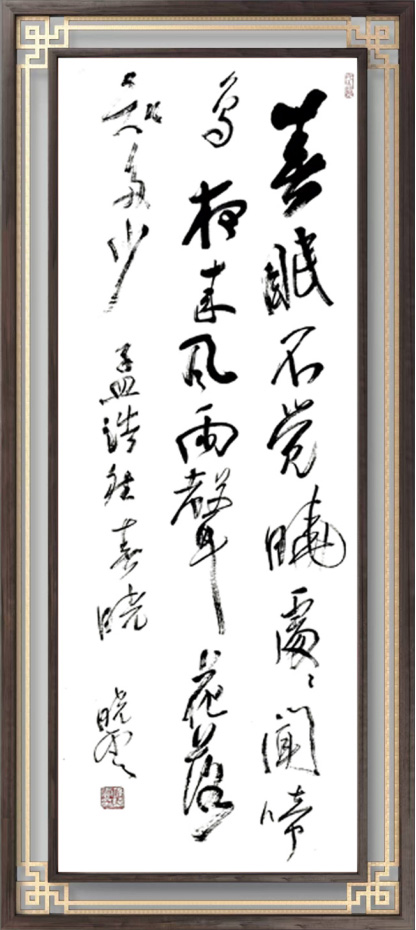 春眠不觉晓处处闻啼
鸟夜来风雨聲花落
知多少孟浩然春晓
晓雲